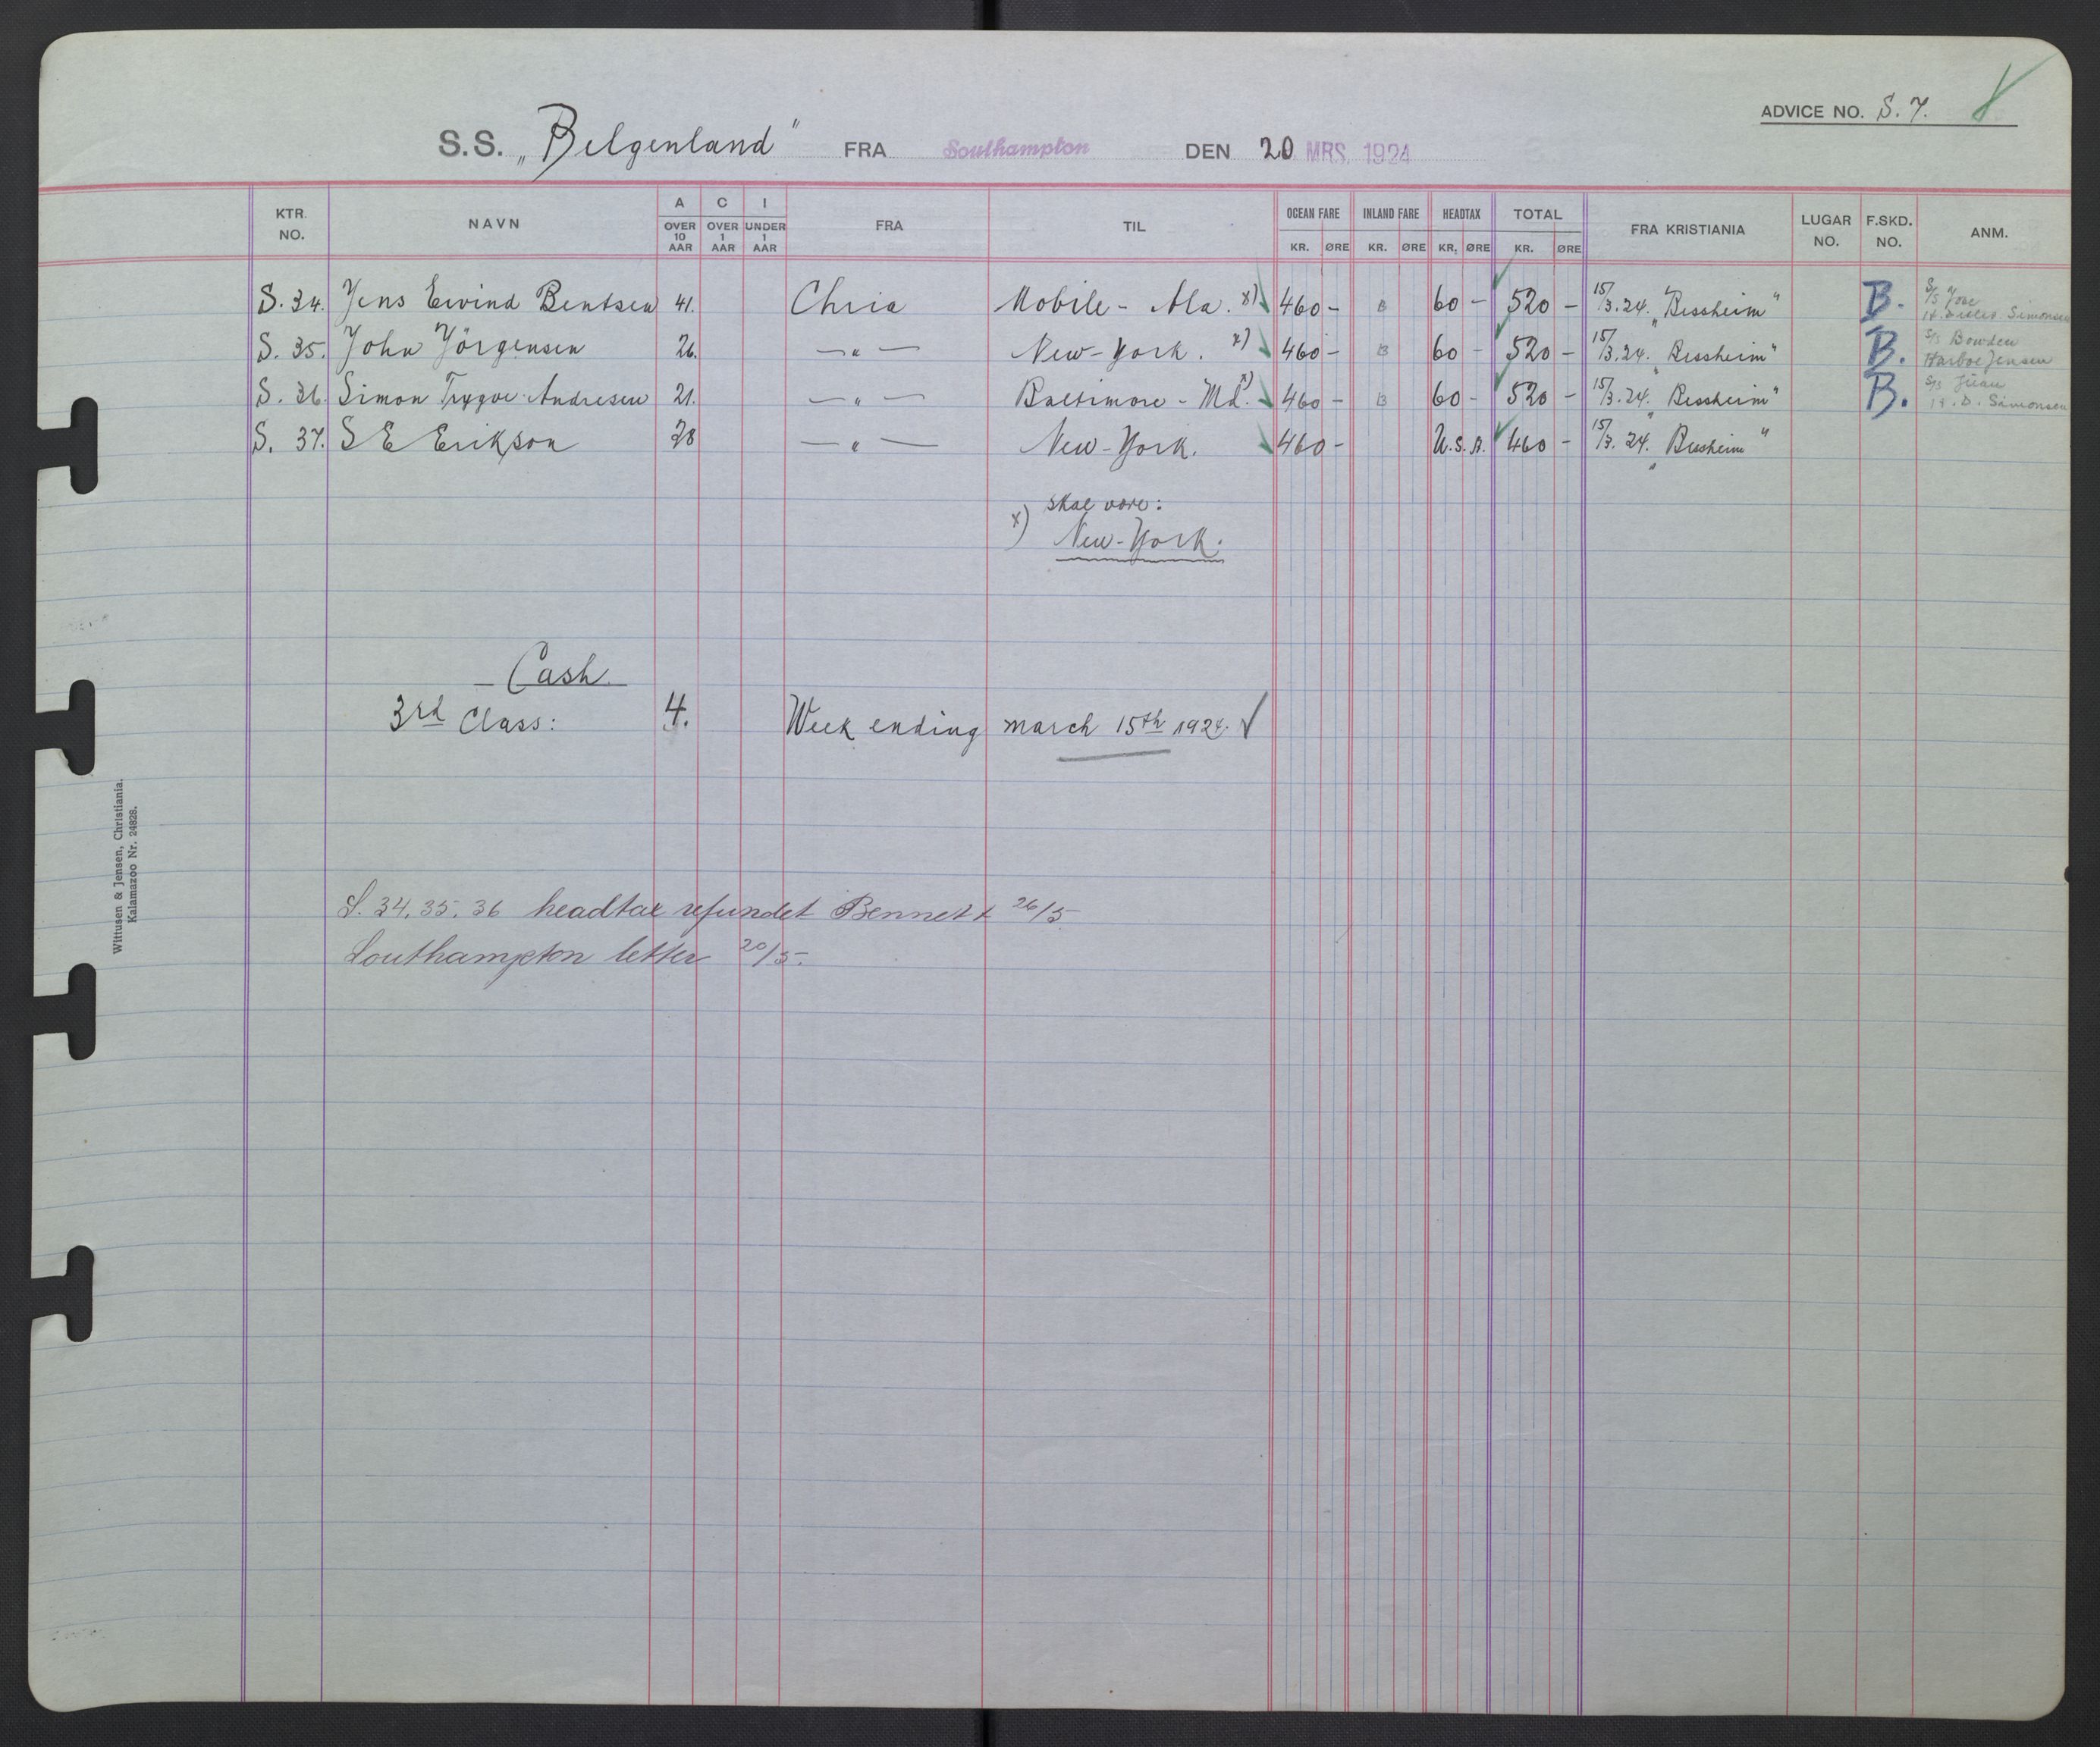 ADVICE NO. S. 7.
S.S. „Belgenland" FRA Southampton DEN 20 MRS. 1924
KTR. NO. NAVN A OVER 10 AAR C OVER 1 AAR I UNDER 1 AAR FRA TIL OCEAN FARE KR. ØRE INLAND FARE KR. ØRE HEADTAX KR. ØRE TOTAL KR. ØRE FRA KRISTIANIA LUGAR NO. F.SKD. NO. ANM.
S. 34. Jens Eivind Bentsen 41. Chria Mobile - Ala. x) 460 - B 60 - 520 - 15/3.24. „Bessheim" B. S/S Simonsen
S. 35. John Jörgensen 26. — " — New-York. x) 460 - B 60 - 520 - 15/3.24. „Bessheim" B. S/S Bowden Harboe Jensen
S. 36. Simon Trygve Andresen 21. — " — Baltimore - Md. x) 460 - B 60 - 520 - 15/3.24. „Bessheim" B. S/S D. Simonsen
S. 37. S E Erikson 28 — " — New-York. 460 - U.S.A. 460 - 15/3.24. „Bessheim"
x) skal være:
New-York.
Cash.
3rd Class: 4. Week ending march 15th 1924. ✓
S. 34, 35, 36 headtax refundet Bennett 26/5.
Southampton letter 20/5.
Wittusen & Jensen, Christiania.
Kalamazoo Nr. 24828.